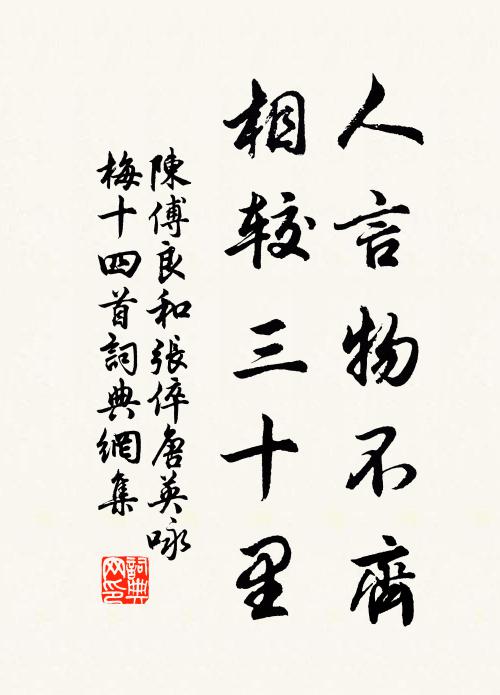 人言物不齊
相较三十里
陳傅良和張倅唐英咏
梅十四首詞典網集
詞典
网印